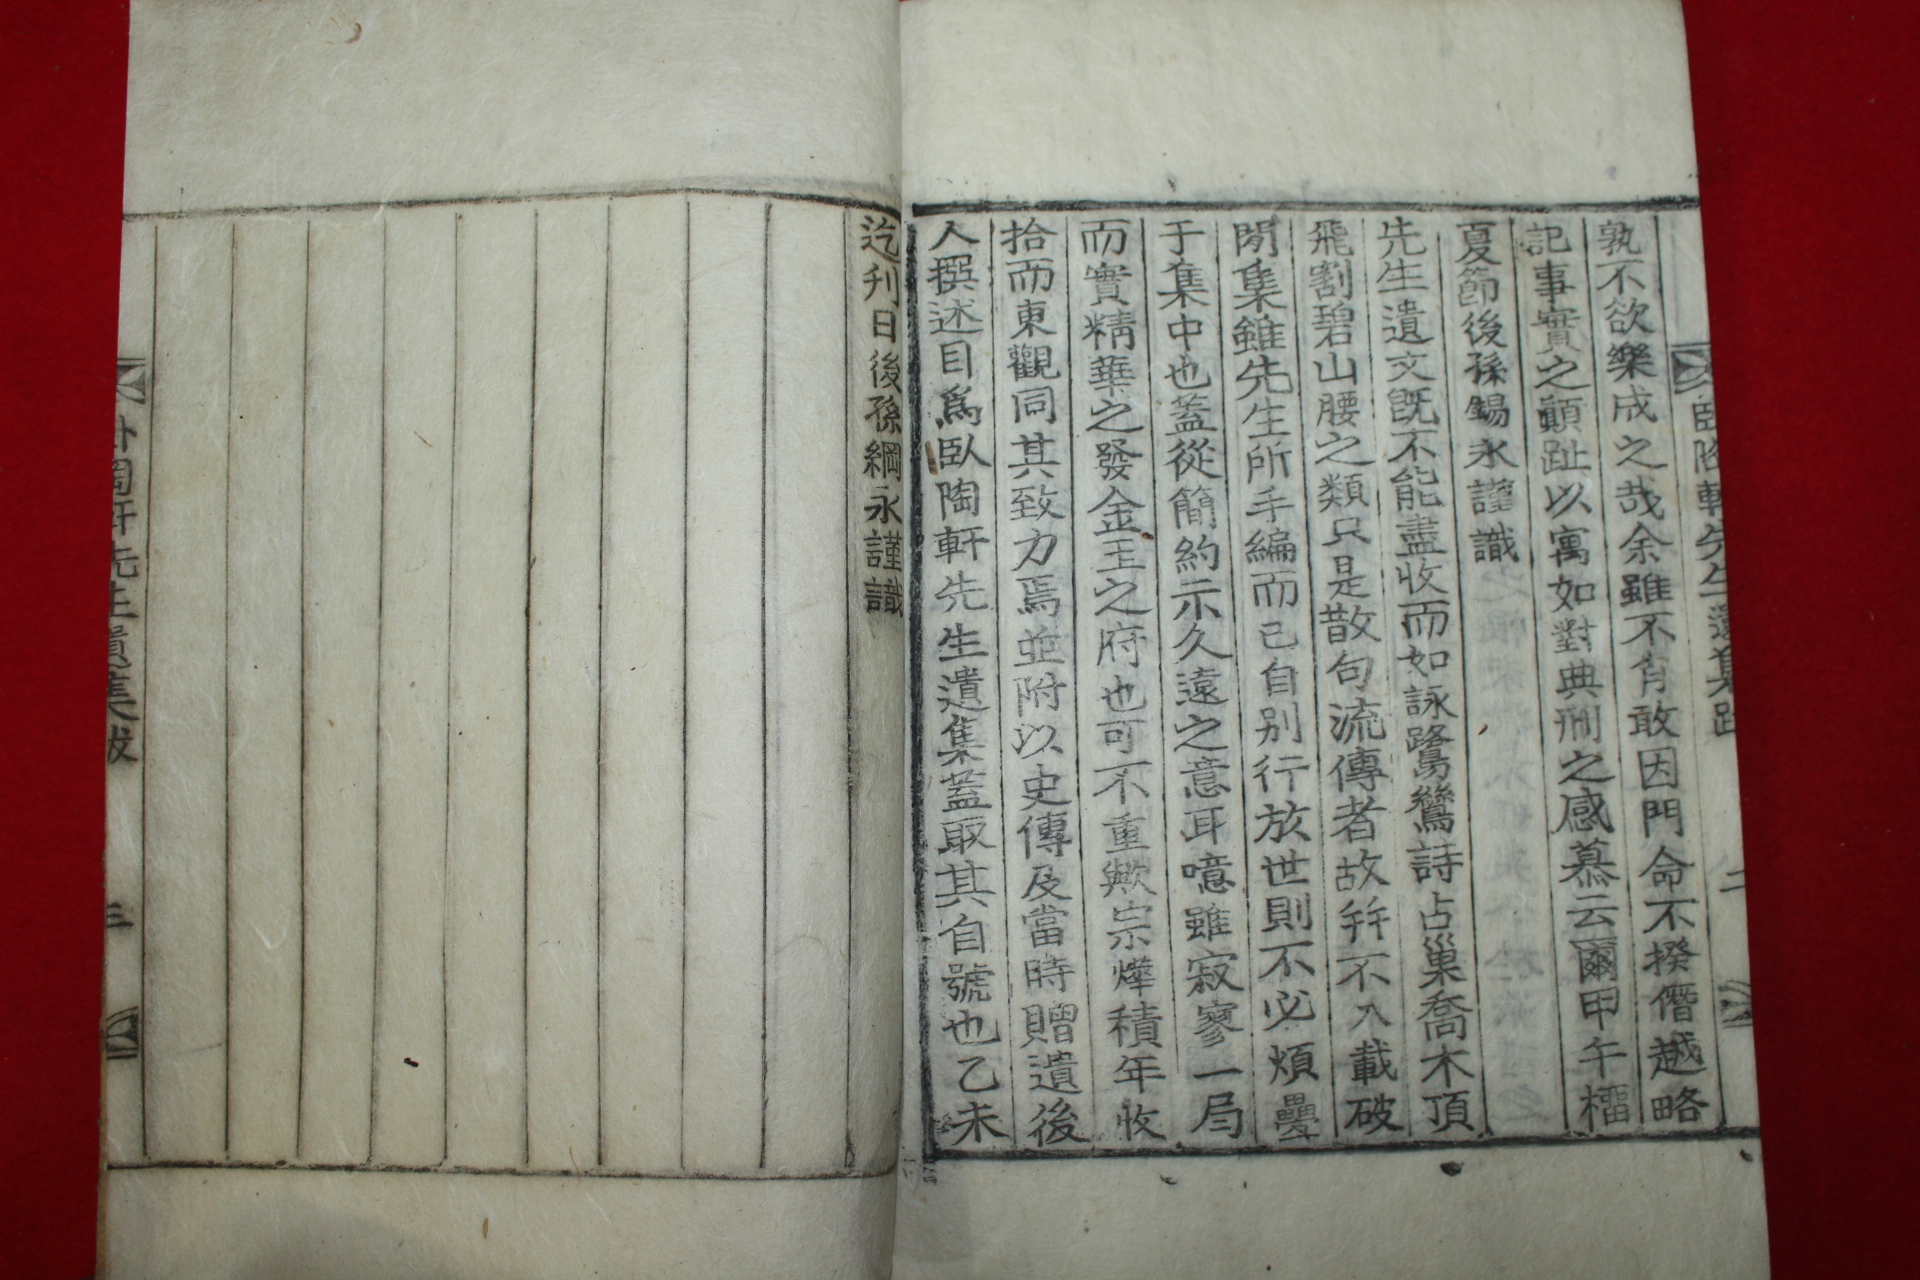 臥陶軒先生遺集跋
二
孰不欲樂成之哉余雖不肖敢因門命不揆僭越略
記事實之顚趾以寓如對典刑之感慕云爾甲午榴
夏節後孫錫永謹識
先生遺文旣不能盡收而如詠鷺鷥詩占巢喬木頂
飛割碧山腰之類只是散句流傳者故幷不入載破
閒集雖先生所手編而已自别行放世則不必煩疊
于集中也蓋從簡約示久遠之意耳噫雖寂寥一局
而實精華之發金玉之府也可不重歟宗燁積年收
拾而東觀同其致力焉並附以史傳及當時贈遺後
人撰述目爲臥陶軒先生遺集蓋取其自號也乙未
迄刋日後孫綱永謹識
臥陶軒先生遺集跋
三